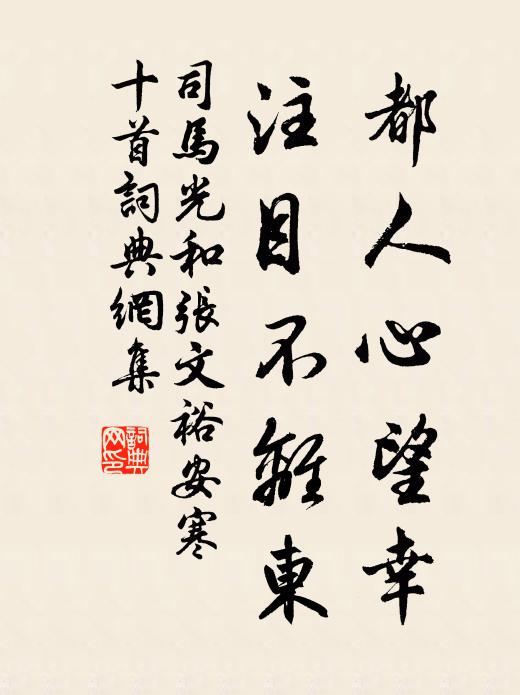 都人心望幸
注目不離東
司馬光和張文裕安寒
十首詞典網集
詞典網印